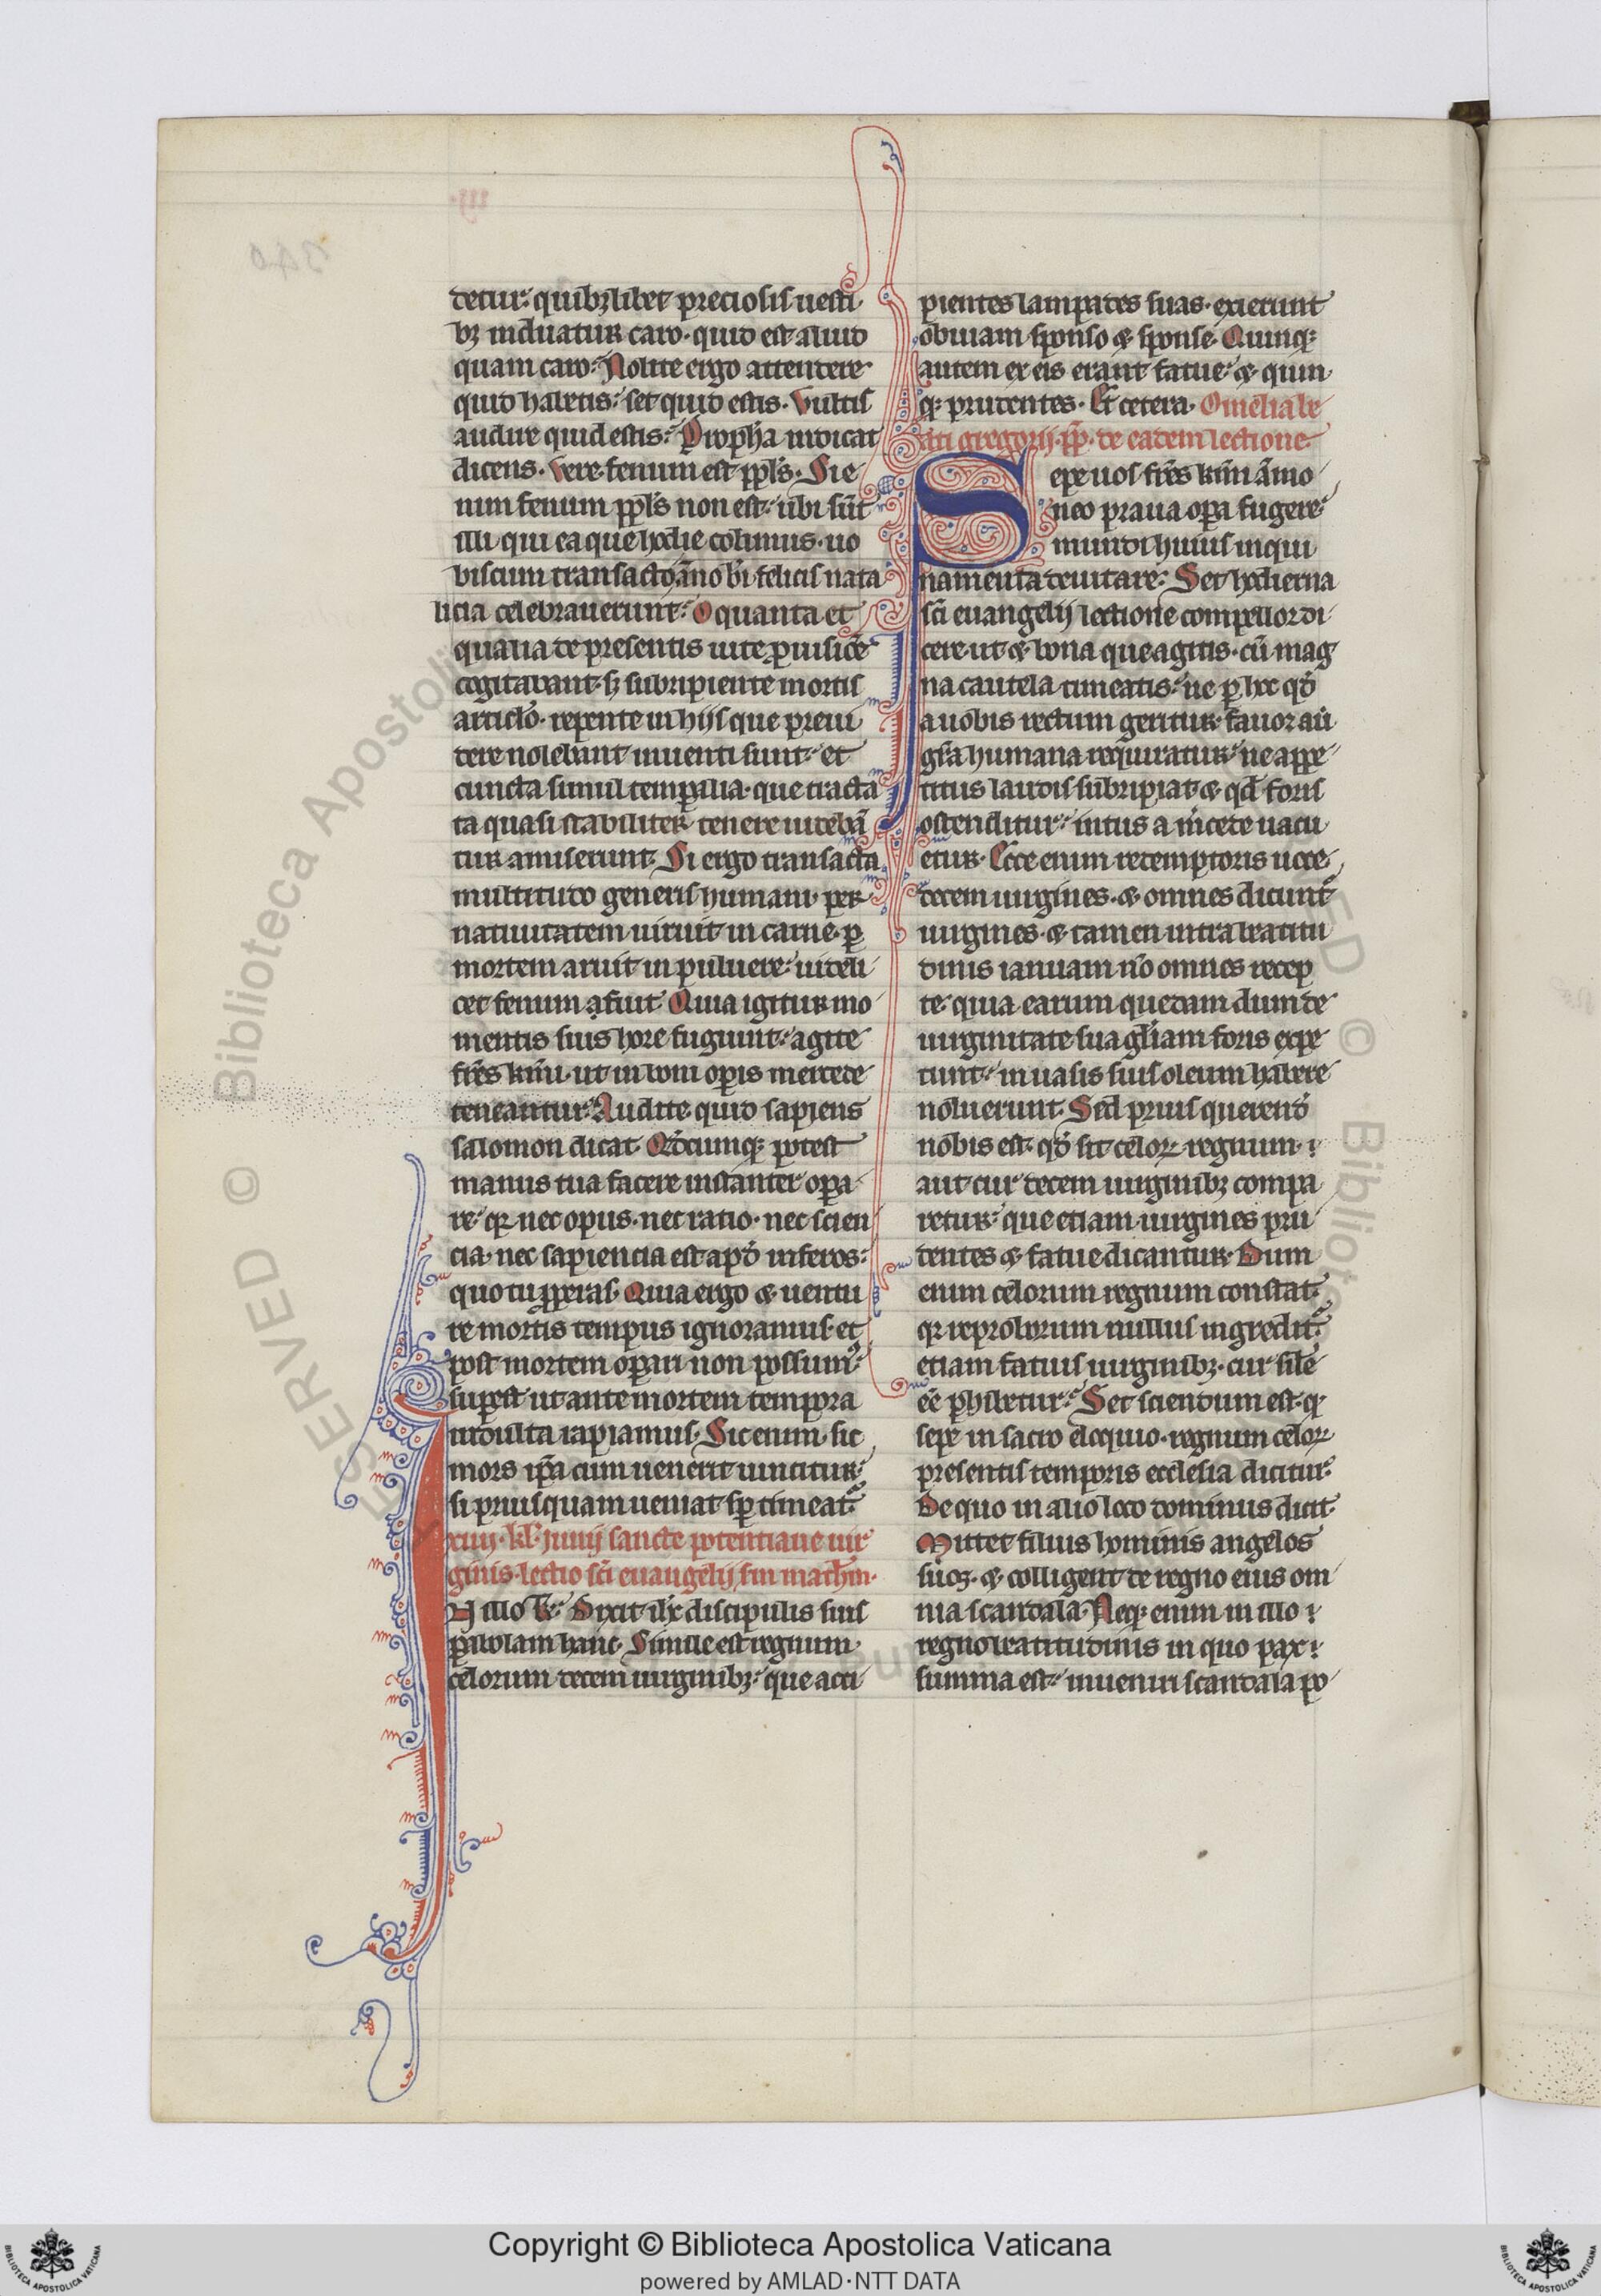 detur: quibꝫlibet preciosis uesti
bꝫ induatur caro. quid est aliud
quam caro: Nolite ergo attendere
quid habetis: set quid estis. Vultis
audire quid estis: Propha indicat
dicens. Vere fenum est ppls. Si e
nim fenum ppls non est: ubi sūt
illi qui ea que hodie colimus. uo
biscum transacto āno bi felicis nata
licia celebrauerunt: O quanta et
qualia de presentis uite ꝓuisiōe
cogitabant. sꝫ subripiente mortis
articlo. repente in hijs que preui
dere nolebant inuenti sunt: et
cuncta simul temꝑalia. que tracta
ta quasi stabiliter tenere uideban
tur amiserunt. Si ergo transacta
multitudo generis humani. per
natiuitatem uiruit in carne. ꝑ
mortem aruit in puluere: uideli
cet fenum fuit. Quia igitur mo
mentis suis hore fugiunt: agite
frēs kmi. ut in boni oꝑis mercede
teneantur. Audite quid sapiens
salomon dicat. Qdcunqꝫ potest
manus tua facere instanter oꝑa
re: qꝛ nec opus. nec ratio. nec scien
cia. nec sapiencia est apd inferos:
quo tu ꝓperas. Quia ergo & uentu
re mortis tempus ignoramus. et
post mortem oꝑari non possumꝰ:
suꝑest ut ante mortem tempora
indulta rapiamus. Sic enim. sic
mors ipa cum uenerit uincitur:
si priusquam ueniat sp timeatᷣ.
xiiij. kl. junij sancte potentiane uir
ginis. lectio sci euangelij sm mathm.
In illo t: Dixit ihc discipulis suis
ꝑabolam hanc. Simile est regnum
celorum decem uirginibꝫ: que acci
pientes lampades suas. exierunt
obuiam sponso & sponse. Quinqꝫ
autem ex eis erant fatue: & quin
qꝫ prudentes. Et cetera. Omelia be
ati gregorij. pp. de eadem lectione
Sepe uos frēs kmi āmo
neo praua oꝑa fugere:
mundi huius inqui
namenta deuitare: Set hodierna
sci euangelij lectione compellor di
cere. ut & bona que agitis. cū mag
na cautela timeatis: ne ꝑ hoc qd
a uobis rectum geritur. fauor aū
gra humana requiratur: ne appe
titus laudis subripiat. & qd foris
ostenditur: intus a mcede uacu
etur. Ecce enim redemptoris uoce
decem uirgines. & omnes dicuntᷣ
uirgines. & tamen intra beatitu
dinis ianuam nō omnes recep
te. quia earum quedam dum de
uirginitate sua gliam foris expe
tunt: in uasis suis oleum habere
noluerunt. Sed prius querend
nobis est. qd sit celoꝝ regnum.
aut cur decem uirginibꝫ compa
retur: que etiam uirgines pru
dentes & fatue dicantur. Dum
enim celorum regnum constat.
qꝛ reproborum nullus ingreditᷣ:
etiam fatuis uirginibꝫ. cur sile
ēē ꝑhibetur: Set sciendum est. qꝛ
sepe in sacro eloquio. regnum celoꝝ
presentis temporis ecclesia dicitur.
De quo in alio loco dominus dicit.
Mittet filius hominis angelos
suos. & colligent de regno eius om
nia scandala. Neqꝫ enim in illo
regno beatitudinis in quo pax
summa est: inueniri scandala po
Copyright © Biblioteca Apostolica Vaticana
powered by AMLAD·NTT DATA